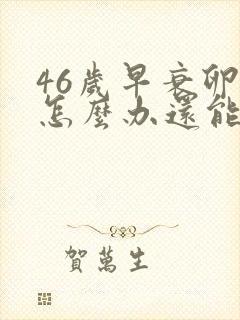 46歲早衰卵
怎麼办還能
賀萬生